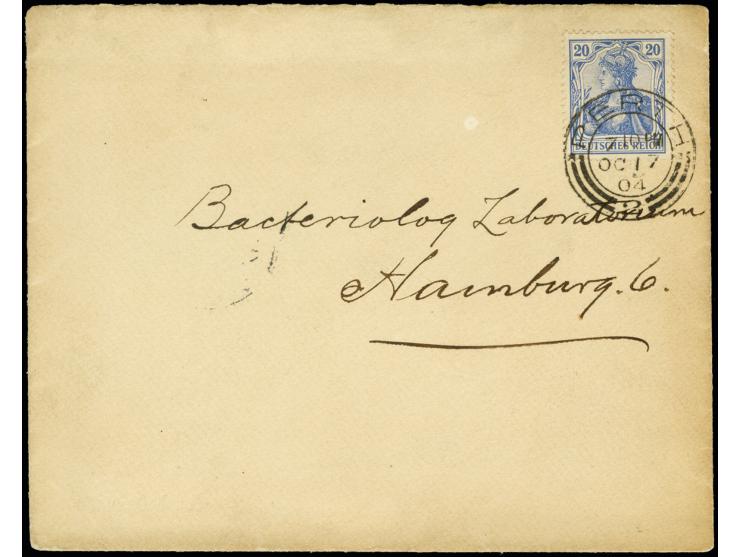 20 20
DEUTSCHES REICH
PERTH
7 10 PM
OC 17
04
2
Bacteriolog Laboratorium
Hamburg. 6.